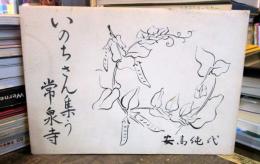 いのちさん集う
常泉寺
安島純代
Werner